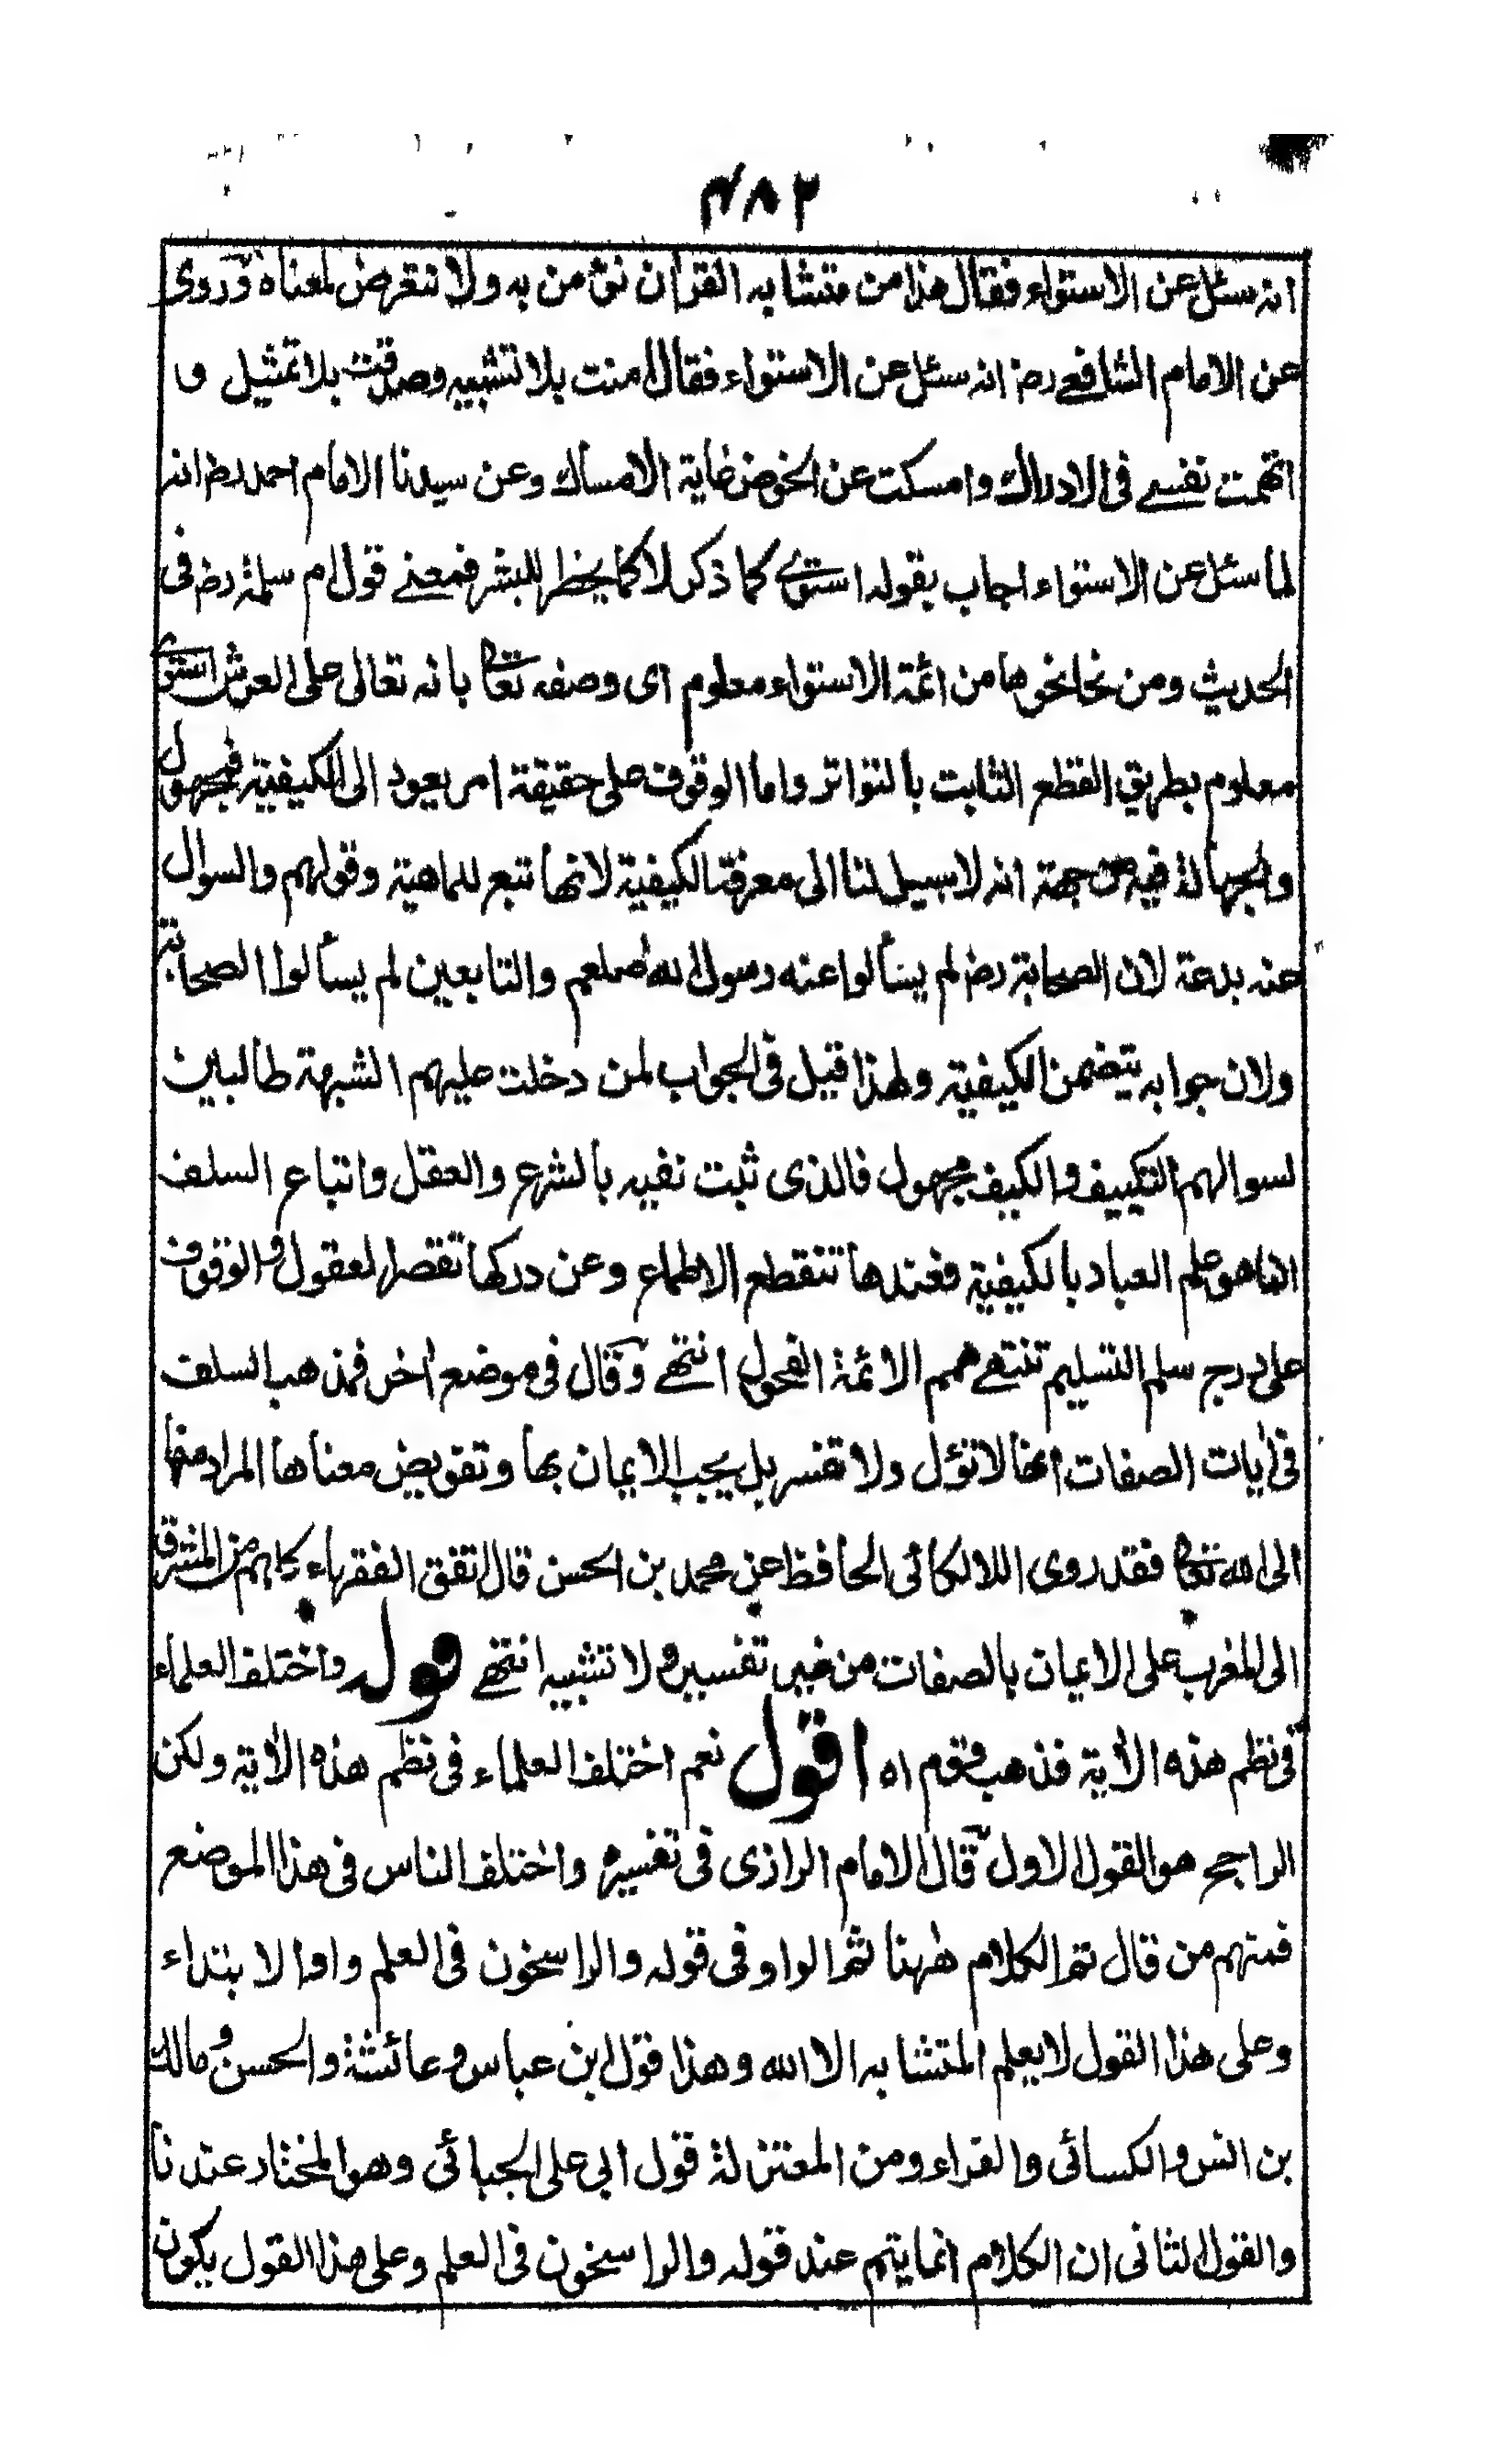 ٤٨٢
انه سئل عن الاستواء فقال هذا من متشابه القرآن نؤمن به ولا نتعرض لمعناه وروى
عن الامام الشافعے رضـ انه سئل عن الاستواء فقال امنت بلا تشبيه وصدقت بلا تمثيل و
اتهمت نفسے فى الادراك وامسكت عن الخوض غاية الامساك وعن سيدنا الامام احمد رضـ انه
لما سئل عن الاستواء اجاب بقوله استوے كما ذكر لا كما يخطر للبشر فمعنے قول ام سلمة رضـ فى
الحديث ومن نحا نحوها من ائمة الاستواء معلوم اى وصفه تعا بانه تعالى على العرش استوى
معلوم بطريق القطع الثابت بالتواتر واما الوقوف على حقيقة امر يعود الى الكيفية فمجهول
والجهالة فيه من جهة انه لا سبيل لنا الى معرفة الكيفية لانها تبع للماهية وقولهم والسوال
عنه بدعة لان الصحابة رضـ لم يسألوا عنه رسول الله صلعم والتابعين لم يسألوا الصحابة
ولان جوابه يتضمن الكيفية ولهذا قيل فى الجواب لمن دخلت عليهم الشبهة طالبين
لسوالهم التكييف والكيف مجهول فالذى ثبت نفيه بالشرع والعقل واتباع السلف
انما هو علم العباد بالكيفية فعندها تنقطع الاطماع وعن دركها تقصر العقول و الوقوف
على درج سلم التسليم تنتهے همم الائمة الفحول انتهے وقال فى موضع اخر فمذهب السلف
فى ايات الصفات انها لا تؤل ولا تفسر بل يجب الايمان بها وتفويض معناها المراد منها
الى الله تعا فقد روى اللالكائى الحافظ عن محمد بن الحسن قال اتفق الفقهاء كلهم من المشرق
الى المغرب على الايمان بالصفات من غير تفسير ولا تشبيه انتهے قوله واختلف العلماء
فى نظم هذه الأية فذهب قوم اه اقول نعم اختلف العلماء فى نظم هذه الأية ولكن
الراجح هو القول الاول قال الامام الرازى فى تفسيره واختلف الناس فى هذا الموضع
فمنهم من قال تم الكلام ههنا ثم الواو فى قوله والراسخون فى العلم واو الابتداء
وعلى هذا القول لا يعلم المتشابه الا الله وهذا قول ابن عباس وعائشة والحسن ومالك
بن انس والكسائى والفراء ومن المعتزلة قول ابى على الجبائى وهو المختار عندنا
والقول الثانى ان الكلام انما يتم عند قوله والراسخون فى العلم وعلى هذا القول يكون